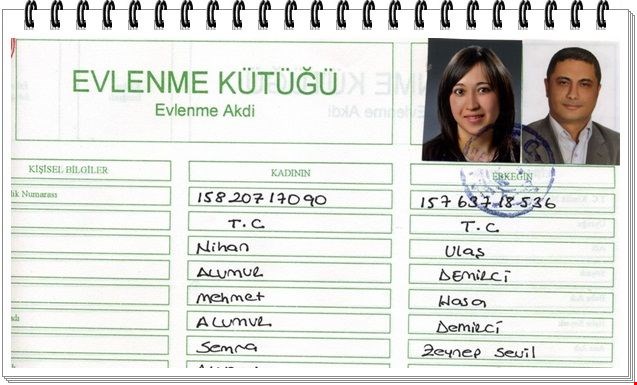 EVLENME KÜTÜĞÜ
Evlenme Akdi
KİŞİSEL BİLGİLER KADININ ERKEĞİN
lik Numarası 15820717090 15763718536
T.C. T.C.
Nihan Ulaş
ALUMUR DEMİRCİ
mehmet Hasa
ALUMUR Demirci
Semra Zeynep Sevil